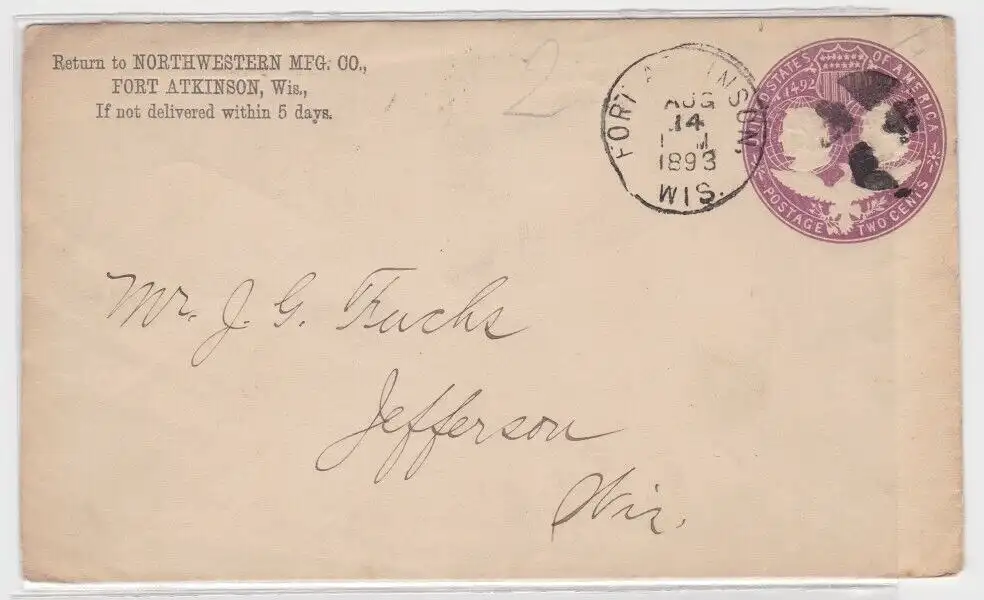 Return to NORTHWESTERN MFG. CO.,
FORT ATKINSON, Wis.,
If not delivered within 5 days.
2
FORT ATKINSON,
AUG
14
1 M
1893
WIS.
UNITED STATES OF AMERICA
1492
POSTAGE TWO CENTS
Mr. J. G. Fuchs
Jefferson
Wis.